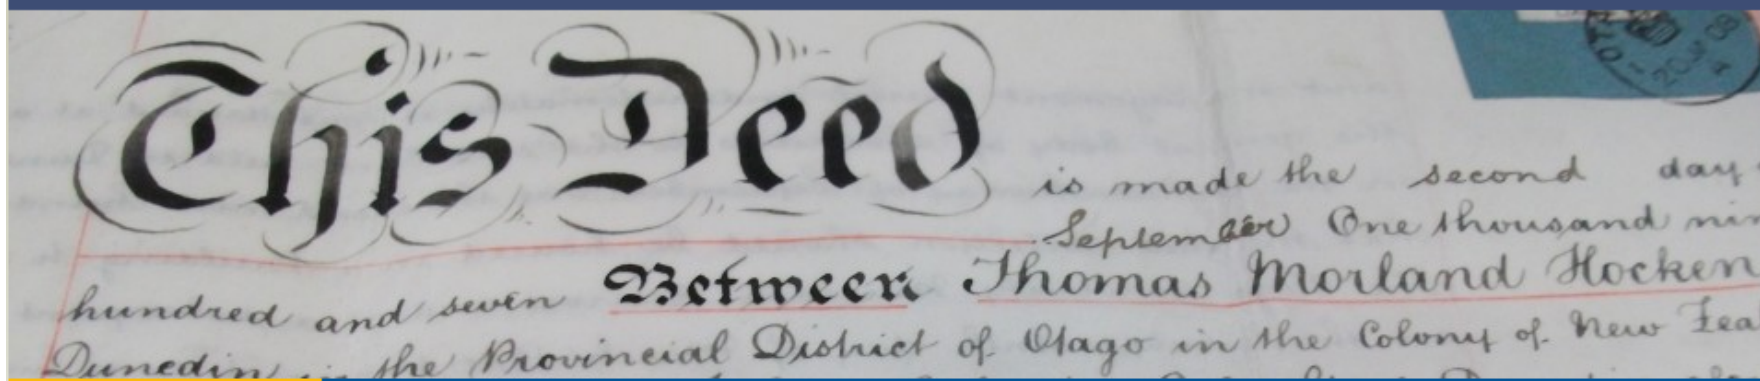 This Deed is made the second day
September One thousand nin
hundred and seven Between Thomas Morland Hocken
Dunedin in the Provincial District of Otago in the Colony of New Zea
OT
20 08
A